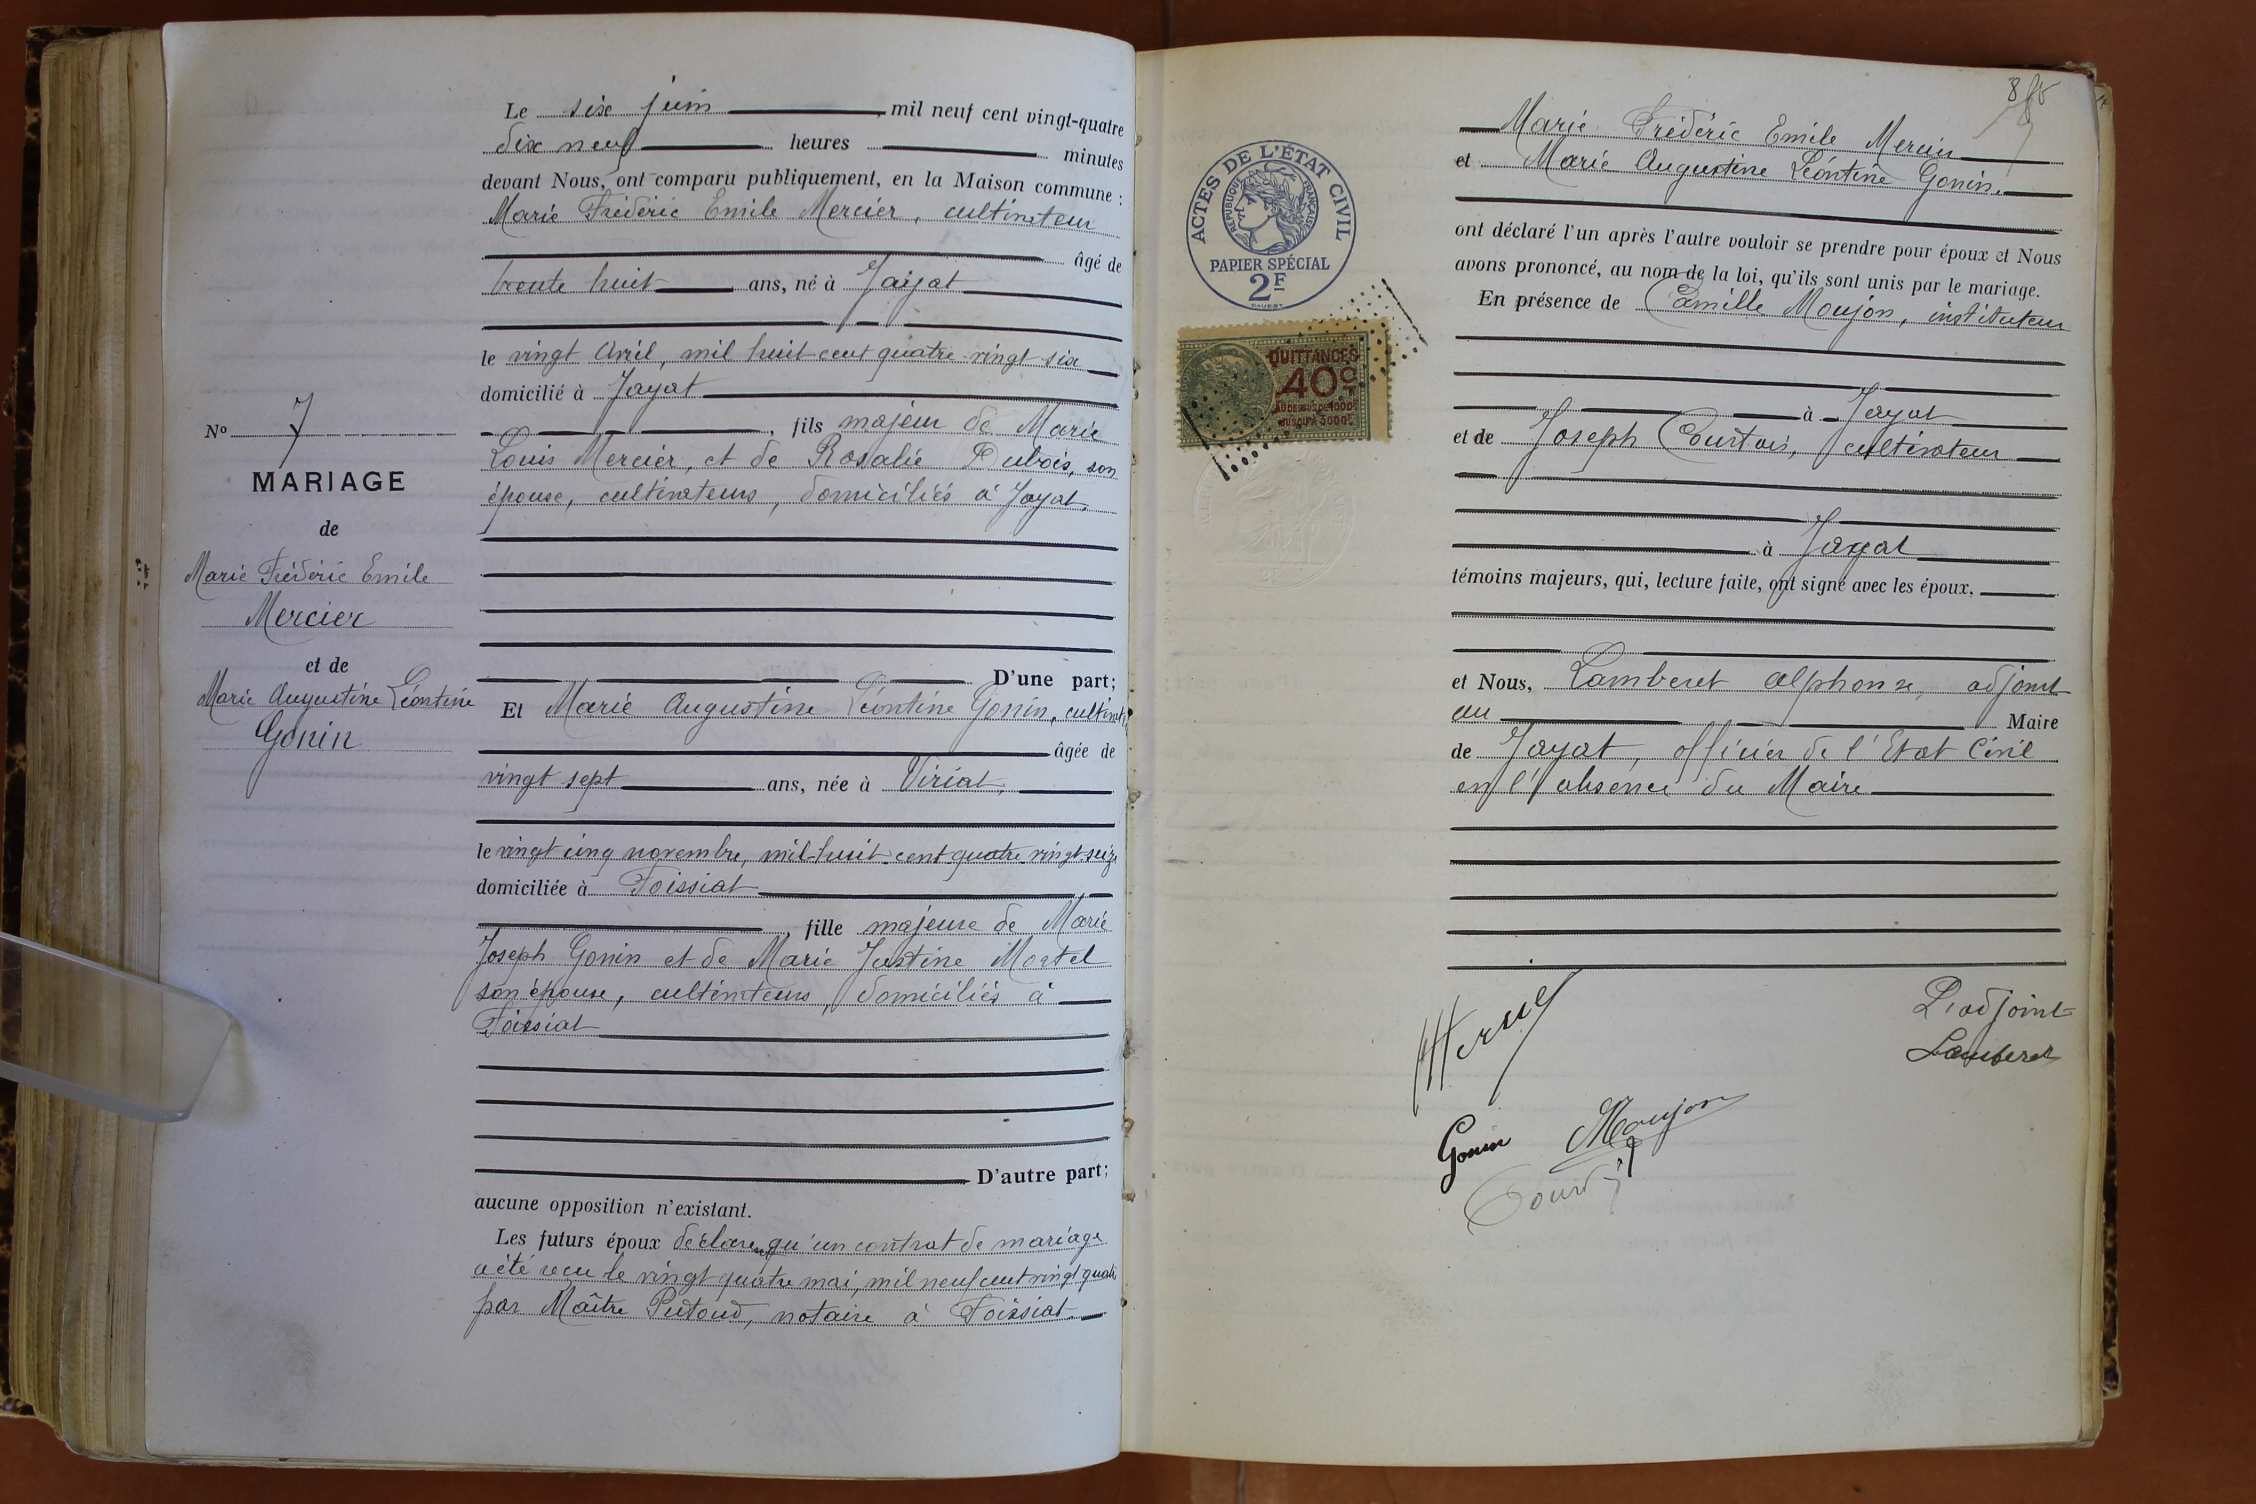 Le six juin mil neuf cent vingt-quatre
dix neuf heures minutes
devant Nous, ont comparu publiquement, en la Maison commune :
Marie Frédéric Emile Mercier, cultivateur
âgé de
trente huit ans, né à Jayat
le vingt Avril, mil huit cent quatre vingt six
domicilié à Jayat
, fils majeur de Marie
Louis Mercier, et de Rosalie Dubois, son
épouse, cultivateurs, domiciliés à Jayat,
D'une part;
Et Marie Augustine Léontine Gonin, cultivat
âgée de
vingt sept ans, née à Viriat,
le vingt cinq novembre, mil-huit-cent quatre vingt seize
domiciliée à Foissiat
, fille majeure de Marie
Joseph Gonin et de Marie Justine Mortel
son épouse, cultivateurs, domiciliés à
Foissiat
D'autre part;
aucune opposition n'existant.
Les futurs époux déclarent qu'un contrat de mariage
a été reçu le vingt quatre mai, mil neuf cent vingt quatre
par Maître Putoud, notaire à Foissiat
No 7
MARIAGE
de
Marie Frédéric Emile
Mercier
et de
Marie Augustine Léontine
Gonin
ACTES DE L'ÉTAT CIVIL
RÉPUBLIQUE FRANÇAISE
PAPIER SPÉCIAL
2F
QUITTANCES
40c
AU DESSUS DE 1000F
JUSQU'A 3000F
Marie Frédéric Emile Mercier
et Marie Augustine Léontine Gonin.
ont déclaré l'un après l'autre vouloir se prendre pour époux et Nous
avons prononcé, au nom de la loi, qu'ils sont unis par le mariage.
En présence de Camille Moujon, instituteur
à Jayat
et de Joseph Courtois, cultivateur
à Jayat
témoins majeurs, qui, lecture faite, ont signé avec les époux.
et Nous, Lamberet Alphonse, adjoint
au Maire
de Jayat, officier de l'Etat Civil
en l'absence du Maire
L'adjoint
Lamberet
Gonin
Moujon